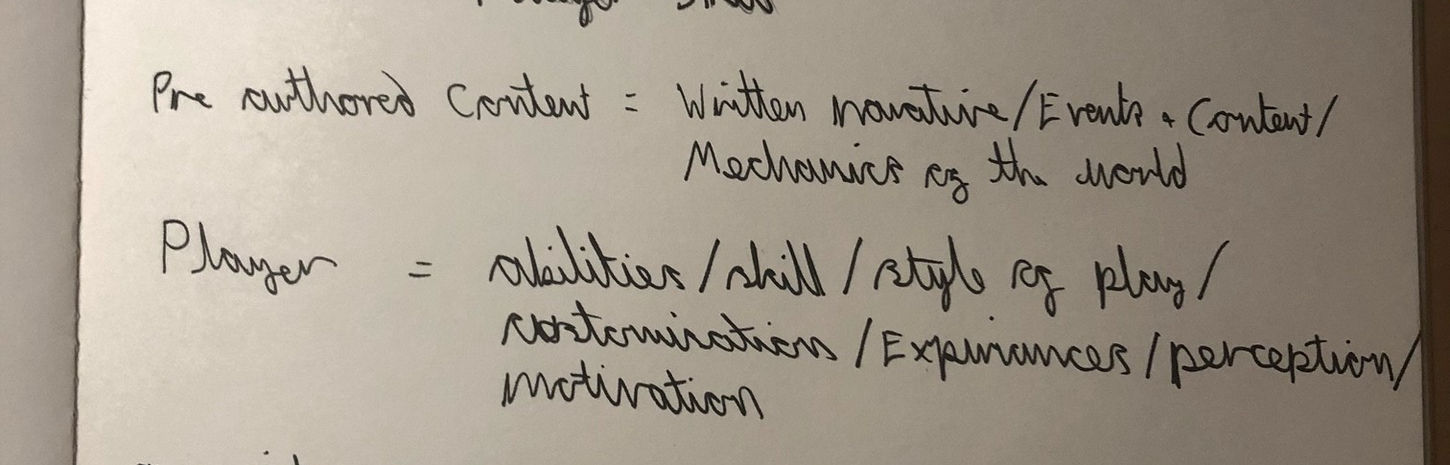 Pre authored Content = Written narative/Events + Content/
Mechanics of the world
Player = abilities/skill/style of play/
/Experiances/perception/
motivation